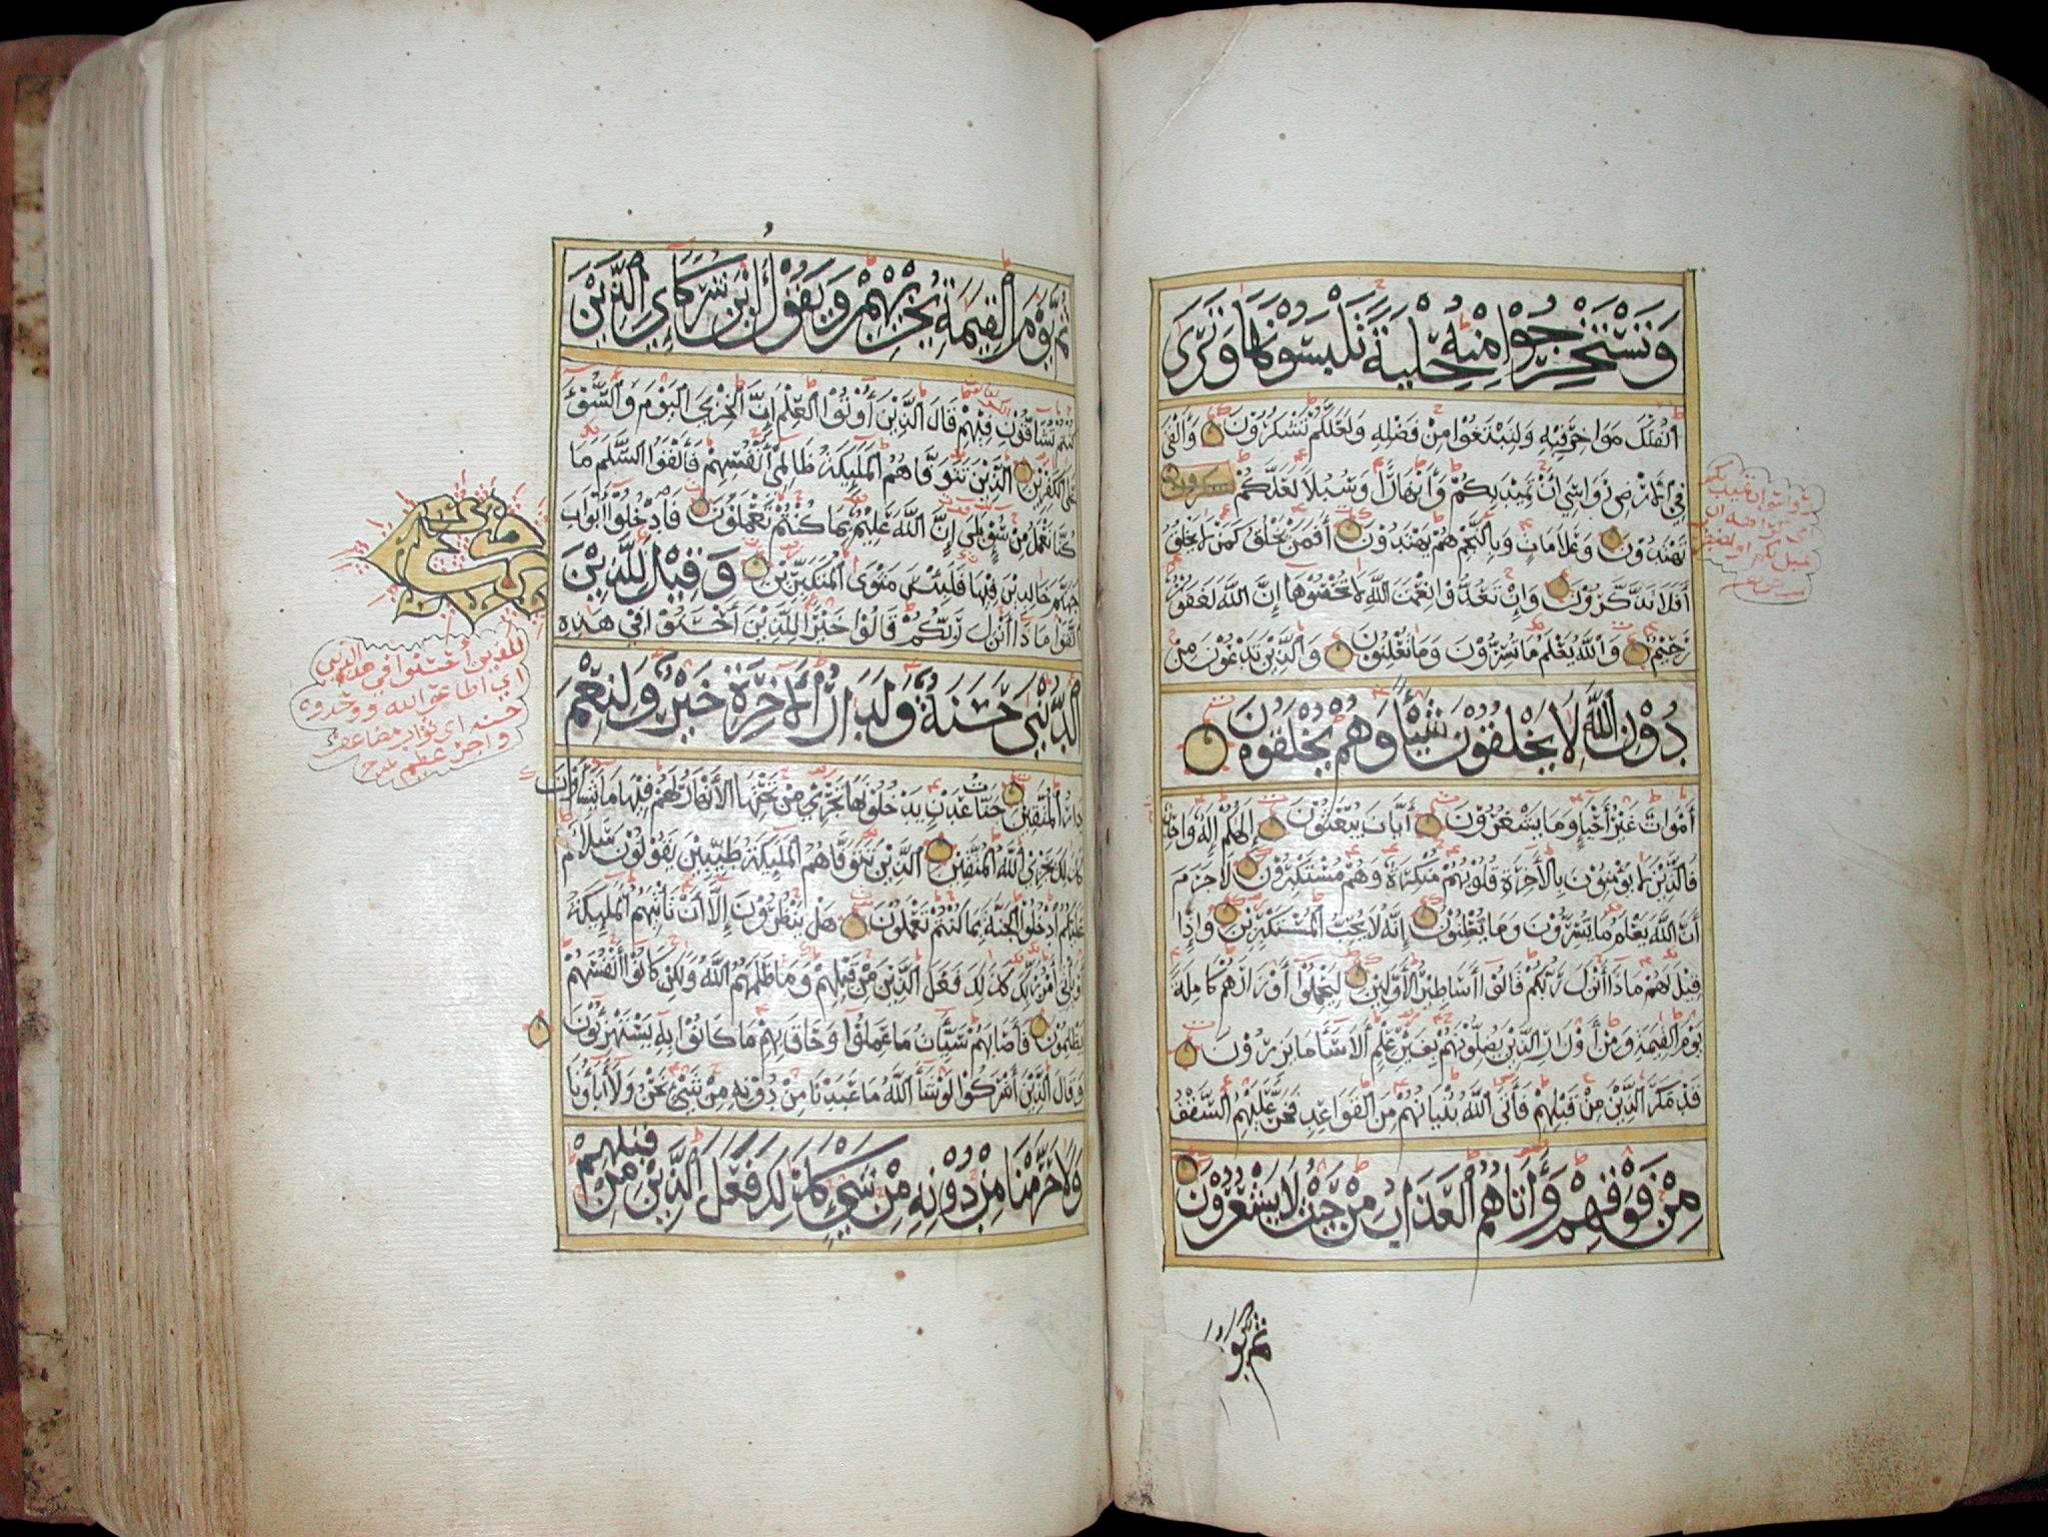 وَتَسْتَخْرِجُوا مِنْهُ حِلْيَةً تَلْبَسُونَهَا وَتَرَى
الْفُلْكَ مَوَاخِرَ فِيهِ وَلِتَبْتَغُوا مِنْ فَضْلِهِ وَلَعَلَّكُمْ تَشْكُرُونَ وَأَلْقَى
فِي الْأَرْضِ رَوَاسِيَ أَنْ تَمِيدَ بِكُمْ وَأَنْهَارًا وَسُبُلًا لَعَلَّكُمْ
تَهْتَدُونَ وَعَلَامَاتٍ وَبِالنَّجْمِ هُمْ يَهْتَدُونَ أَفَمَنْ يَخْلُقُ كَمَنْ لَا يَخْلُقُ
أَفَلَا تَذَكَّرُونَ وَإِنْ تَعُدُّوا نِعْمَتَ اللَّهِ لَا تُحْصُوهَا إِنَّ اللَّهَ لَغَفُورٌ
رَحِيمٌ وَاللَّهُ يَعْلَمُ مَا تُسِرُّونَ وَمَا تُعْلِنُونَ وَالَّذِينَ تَدْعُونَ مِنْ
دُونِ اللَّهِ لَا يَخْلُقُونَ شَيْئًا وَهُمْ يُخْلَقُونَ
أَمْوَاتٌ غَيْرُ أَحْيَاءٍ وَمَا يَشْعُرُونَ أَيَّانَ يُبْعَثُونَ إِلَهُكُمْ إِلَهٌ وَاحِدٌ
فَالَّذِينَ لَا يُؤْمِنُونَ بِالْآخِرَةِ قُلُوبُهُمْ مُنْكِرَةٌ وَهُمْ مُسْتَكْبِرُونَ لَا جَرَمَ
أَنَّ اللَّهَ يَعْلَمُ مَا يُسِرُّونَ وَمَا يُعْلِنُونَ إِنَّهُ لَا يُحِبُّ الْمُسْتَكْبِرِينَ وَإِذَا
قِيلَ لَهُمْ مَاذَا أَنْزَلَ رَبُّكُمْ قَالُوا أَسَاطِيرُ الْأَوَّلِينَ لِيَحْمِلُوا أَوْزَارَهُمْ كَامِلَةً
يَوْمَ الْقِيمَةِ وَمِنْ أَوْزَارِ الَّذِينَ يُضِلُّونَهُمْ بِغَيْرِ عِلْمٍ أَلَا سَاءَ مَا يَزِرُونَ
قَدْ مَكَرَ الَّذِينَ مِنْ قَبْلِهِمْ فَأَتَى اللَّهُ بُنْيَانَهُمْ مِنَ الْقَوَاعِدِ فَخَرَّ عَلَيْهِمُ السَّقْفُ
مِنْ فَوْقِهِمْ وَأَتَاهُمُ الْعَذَابُ مِنْ حَيْثُ لَا يَشْعُرُونَ
ثم يو
ثُمَّ يَوْمَ الْقِيمَةِ يُخْزِيهِمْ وَيَقُولُ أَيْنَ شُرَكَاءِيَ الَّذِينَ
كُنْتُمْ تُشَاقُّونَ فِيهِمْ قَالَ الَّذِينَ أُوتُوا الْعِلْمَ إِنَّ الْخِزْيَ الْيَوْمَ وَالسُّوءَ
عَلَى الْكَافِرِينَ الَّذِينَ تَتَوَفَّاهُمُ الْمَلَئِكَةُ ظَالِمِي أَنْفُسِهِمْ فَأَلْقَوُا السَّلَمَ مَا
كُنَّا نَعْمَلُ مِنْ سُوءٍ بَلَى إِنَّ اللَّهَ عَلِيمٌ بِمَا كُنْتُمْ تَعْمَلُونَ فَادْخُلُوا أَبْوَابَ
جَهَنَّمَ خَالِدِينَ فِيهَا فَلَبِئْسَ مَثْوَى الْمُتَكَبِّرِينَ وَقِيلَ لِلَّذِينَ
اتَّقَوْا مَاذَا أَنْزَلَ رَبُّكُمْ قَالُوا خَيْرًا لِلَّذِينَ أَحْسَنُوا فِي هَذِهِ
الدُّنْيَا حَسَنَةٌ وَلَدَارُ الْآخِرَةِ خَيْرٌ وَلَنِعْمَ
دَارُ الْمُتَّقِينَ جَنَّاتُ عَدْنٍ يَدْخُلُونَهَا تَجْرِي مِنْ تَحْتِهَا الْأَنْهَارُ لَهُمْ فِيهَا مَا يَشَاءُونَ
كَذَلِكَ يَجْزِي اللَّهُ الْمُتَّقِينَ الَّذِينَ تَتَوَفَّاهُمُ الْمَلَئِكَةُ طَيِّبِينَ يَقُولُونَ سَلَامٌ
عَلَيْكُمُ ادْخُلُوا الْجَنَّةَ بِمَا كُنْتُمْ تَعْمَلُونَ هَلْ يَنْظُرُونَ إِلَّا أَنْ تَأْتِيَهُمُ الْمَلَئِكَةُ
أَوْ يَأْتِيَ أَمْرُ رَبِّكَ كَذَلِكَ فَعَلَ الَّذِينَ مِنْ قَبْلِهِمْ وَمَا ظَلَمَهُمُ اللَّهُ وَلَكِنْ كَانُوا أَنْفُسَهُمْ
يَظْلِمُونَ فَأَصَابَهُمْ سَيِّئَاتُ مَا عَمِلُوا وَحَاقَ بِهِمْ مَا كَانُوا بِهِ يَسْتَهْزِءُونَ
وَقَالَ الَّذِينَ أَشْرَكُوا لَوْ شَاءَ اللَّهُ مَا عَبَدْنَا مِنْ دُونِهِ مِنْ شَيْءٍ نَحْنُ وَلَا آبَاؤُنَا
وَلَا حَرَّمْنَا مِنْ دُونِهِ مِنْ شَيْءٍ كَذَلِكَ فَعَلَ الَّذِينَ مِنْ قَبْلِهِمْ
للذين أحسنوا في هذه الدنيا
اي اطاعوا الله ووحدوه
حسنة اي ثواب مضاعف
واجر عظيم